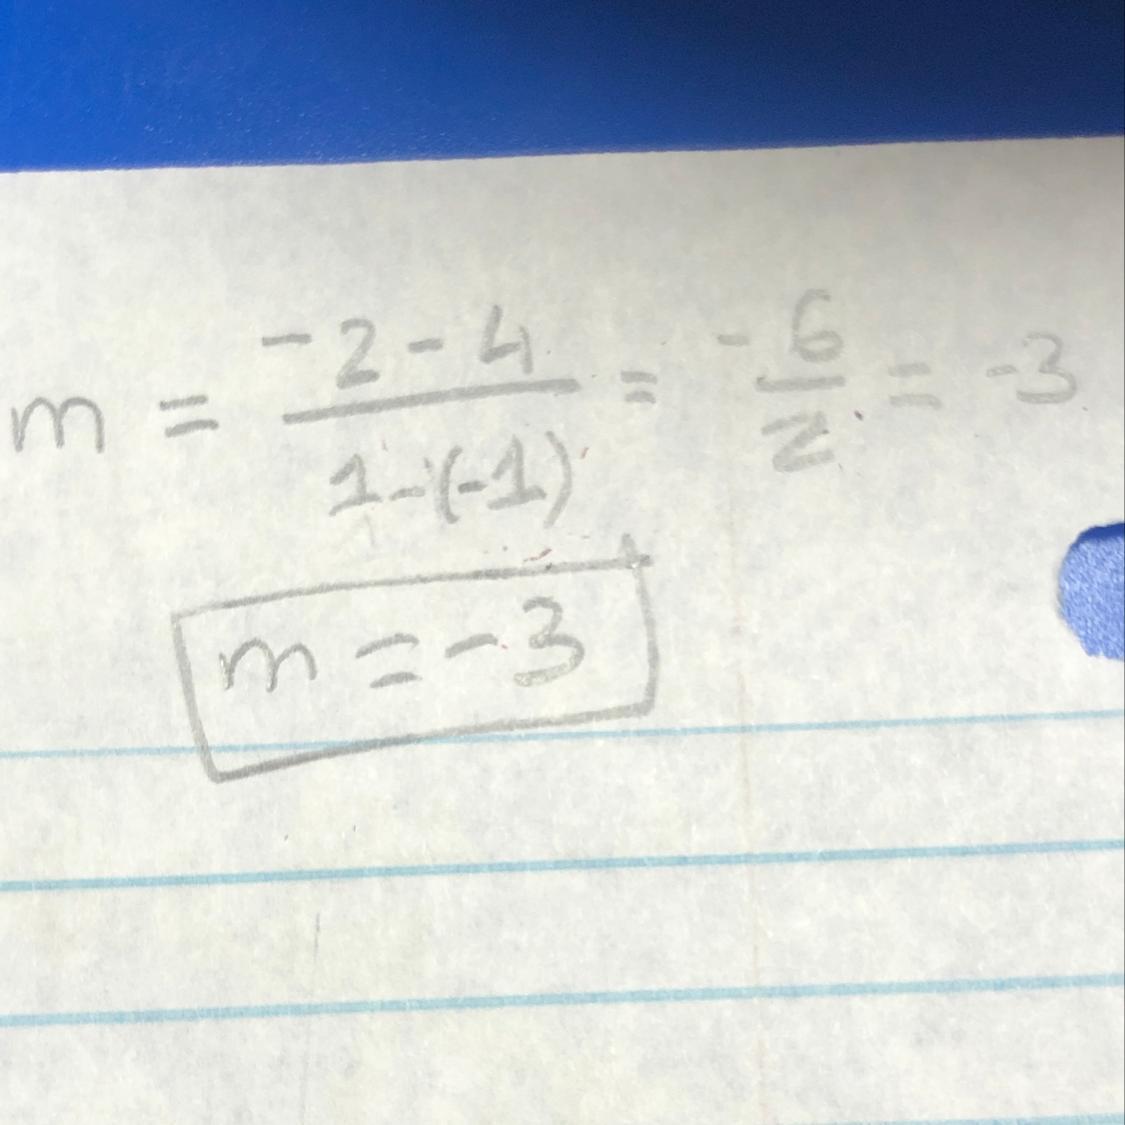 m = -2-4/1-(-1) = -6/2 = -3
m = -3